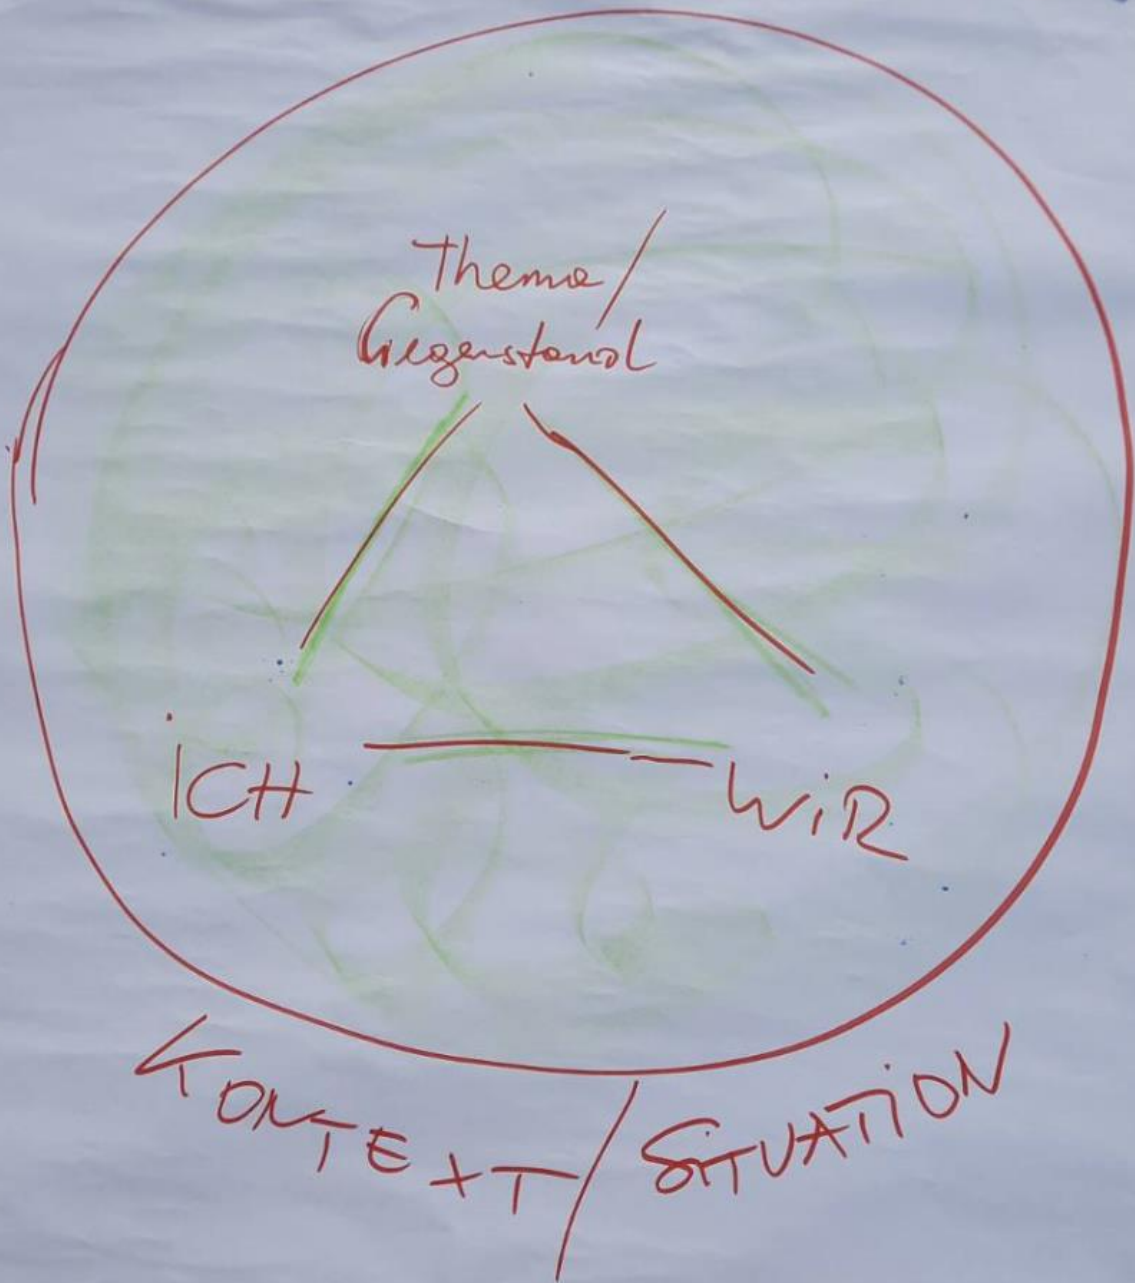 Thema/
Gegenstand
iCH
WiR
KONTEXT/SiTUATiON